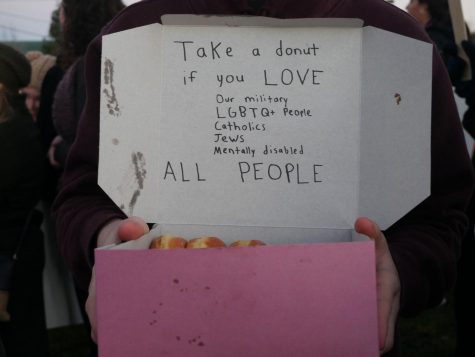 Take a donut
if you LOVE
Our military
LGBTQ+ People
Catholics
Jews
Mentally disabled
ALL PEOPLE